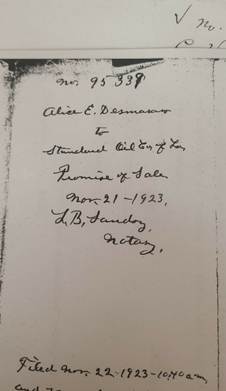 ✓ no.
no. 95339
Alice E. Desmarais
to
Standard Oil Co. of La,
Promise of Sale
Nov. 21-1923,
L.B. Sandoz,
Notary,
Filed Nov. 22-1923-10:40 am
and